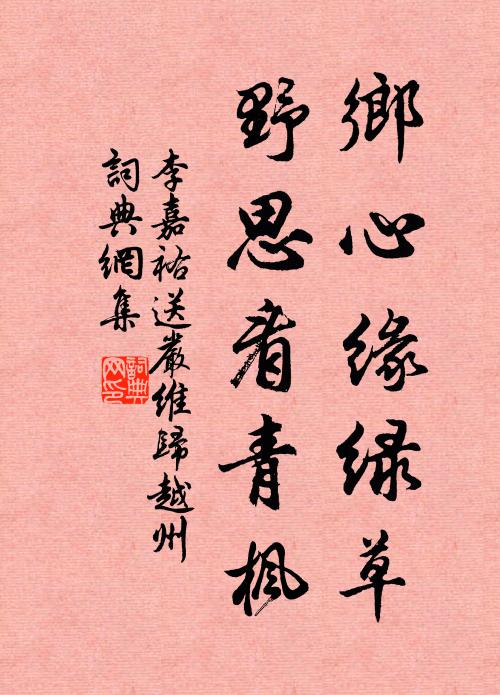 鄉心緣綠草
野思看青楓
李嘉裕送嚴維歸越州
詞典網集
詞典网印